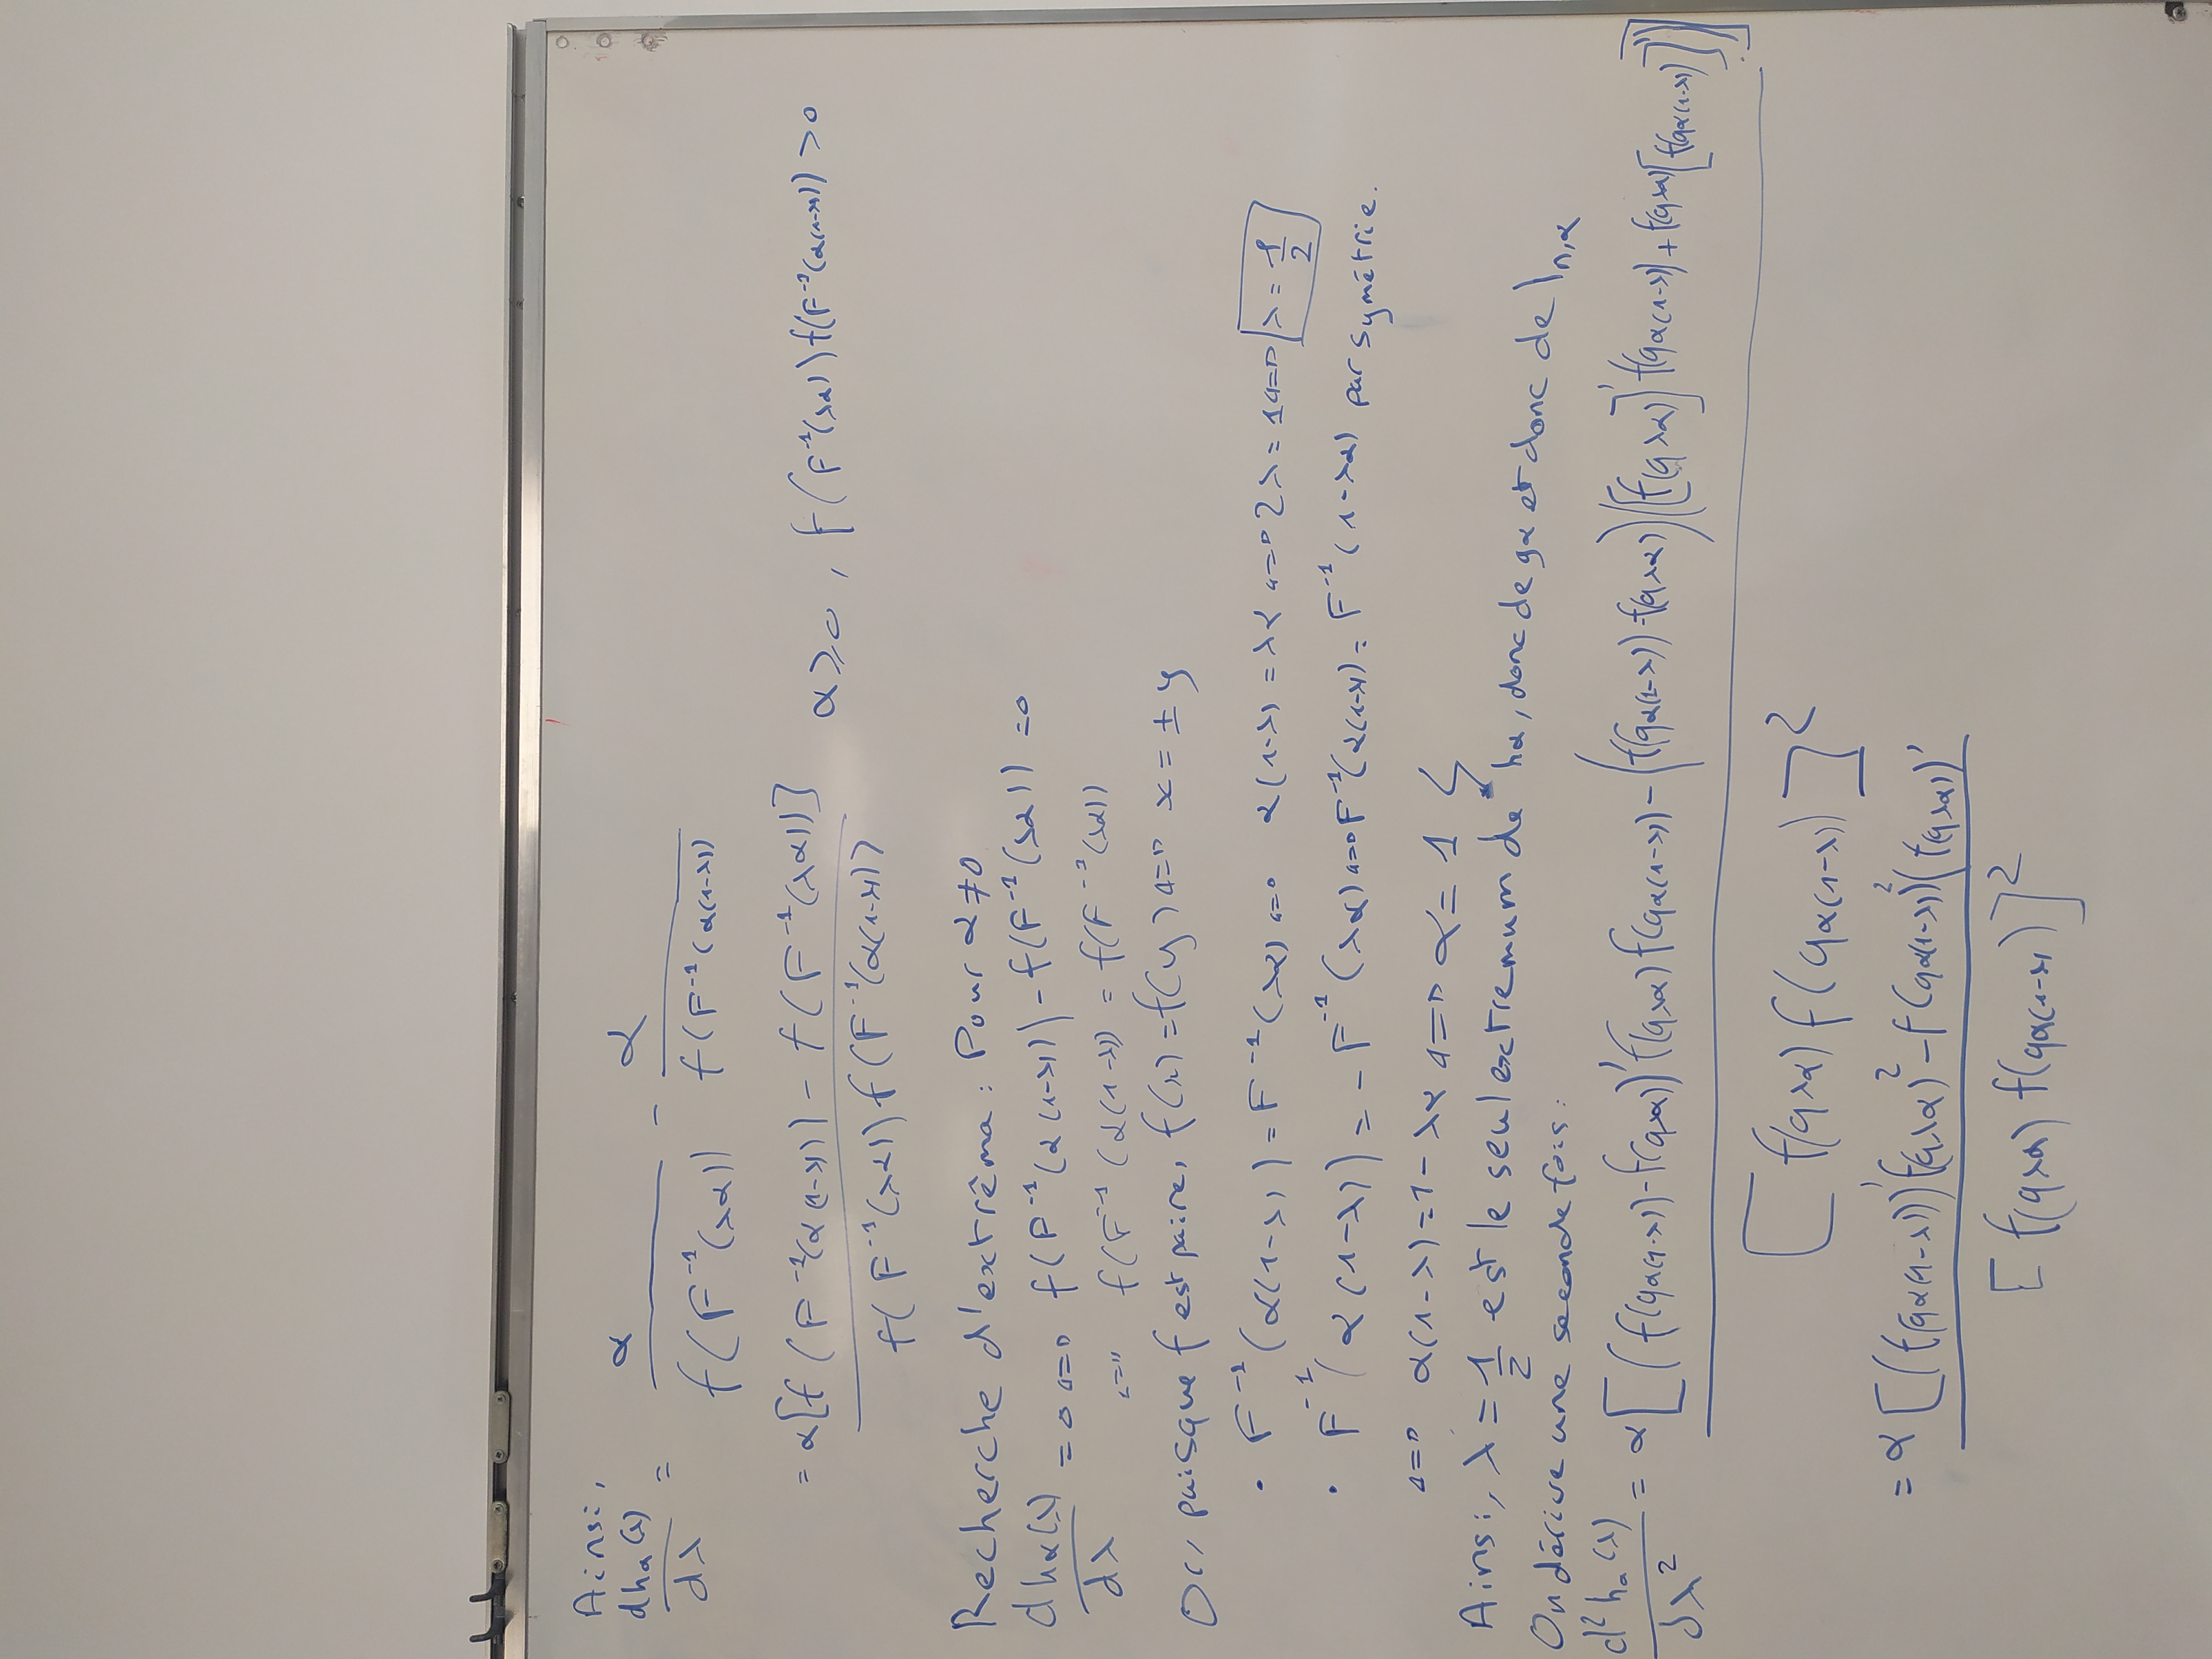 Ainsi,
dhα(λ)/dλ = α/f(F⁻¹(λα)) - α/f(F⁻¹(α(1-λ))
= α[f(F⁻¹(α(1-λ))) - f(F⁻¹(λα))]/f(F⁻¹(λα)) f(F⁻¹(α(1-λ)) α ⩾ 0, f(F⁻¹(λα)) f(F⁻¹(α(1-λ))) > 0
Recherche d'extrêma : Pour α ≠ 0
dhα(λ)/dλ = 0 ⟺ f(F⁻¹(α(1-λ))) - f(F⁻¹(λα)) = 0
⟺ f(F⁻¹(α(1-λ)) = f(F⁻¹(λα))
Or, puisque f est paire, f(x) = f(y) ⟺ x = ± y
• F⁻¹(α(1-λ)) = F⁻¹(λα) ⟺ α(1-λ) = λα ⟺ 2λ = 1 ⟺ λ = 1/2
• F⁻¹(α(1-λ)) = - F⁻¹(λα) ⟺ F⁻¹(α(1-λ)) = F⁻¹(1-λα) par symétrie.
⟺ α(1-λ) = 1 - λα ⟺ α = 1 ↯
Ainsi, λ = 1/2 est le seul extremum de hα, donc de gα et donc de ln,α
On dérive une seconde fois :
d²hα(λ)/dλ² = α[(f(qα(1-λ)) - f(qλα))' f(qλα) f(qα(1-λ)) - (f(qα(1-λ)) - f(qλα))([f(qλα)]' f(qα(1-λ)) + f(qλα)[f(qα(1-λ))]')]/[f(qλα) f(qα(1-λ))]²
= α[(f(qα(1-λ)))' f(qλα)² - f(qα(1-λ))² (f(qλα))'/[f(qλα) f(qα(1-λ))]²